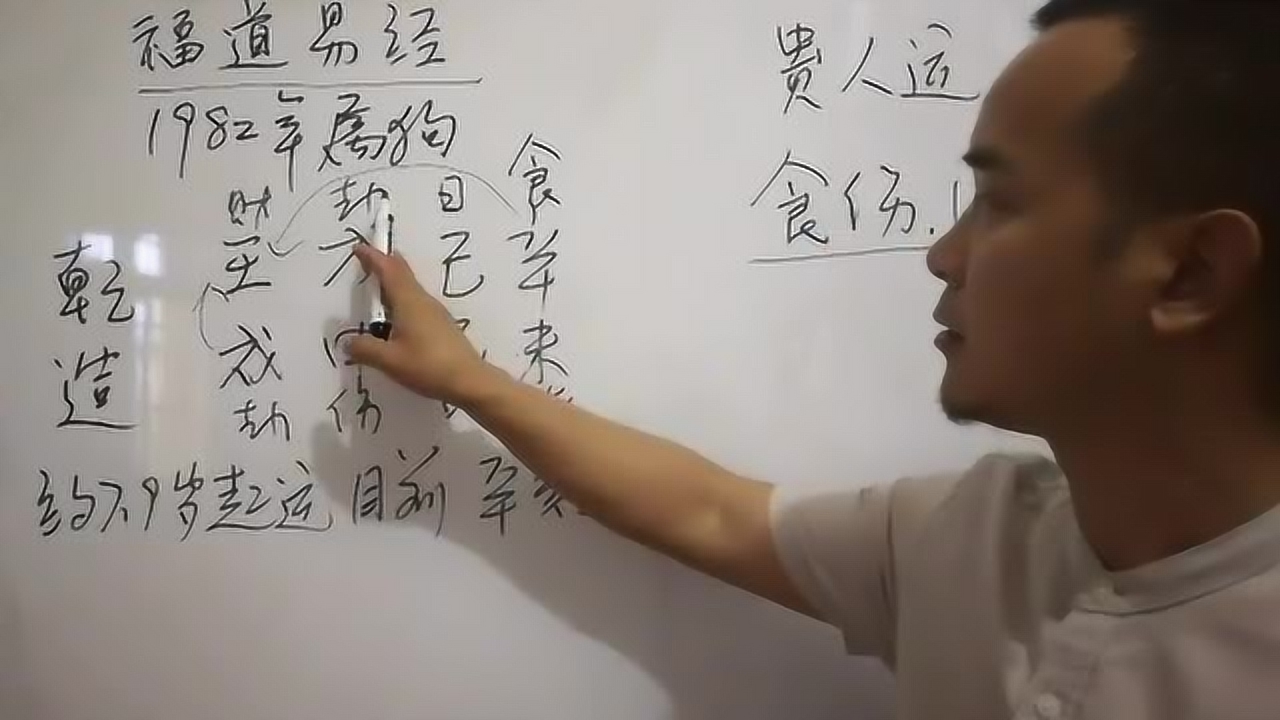 福道易经
1982年属狗
财 劫 日 食
壬 戊 己 辛
乾造
戌 申 未
劫 伤
约7.9岁起运 目前 辛亥
貴人运
食伤.